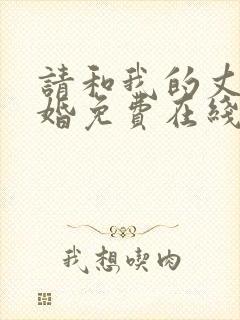 請和我的丈
婚免費在綫
我想喫肉